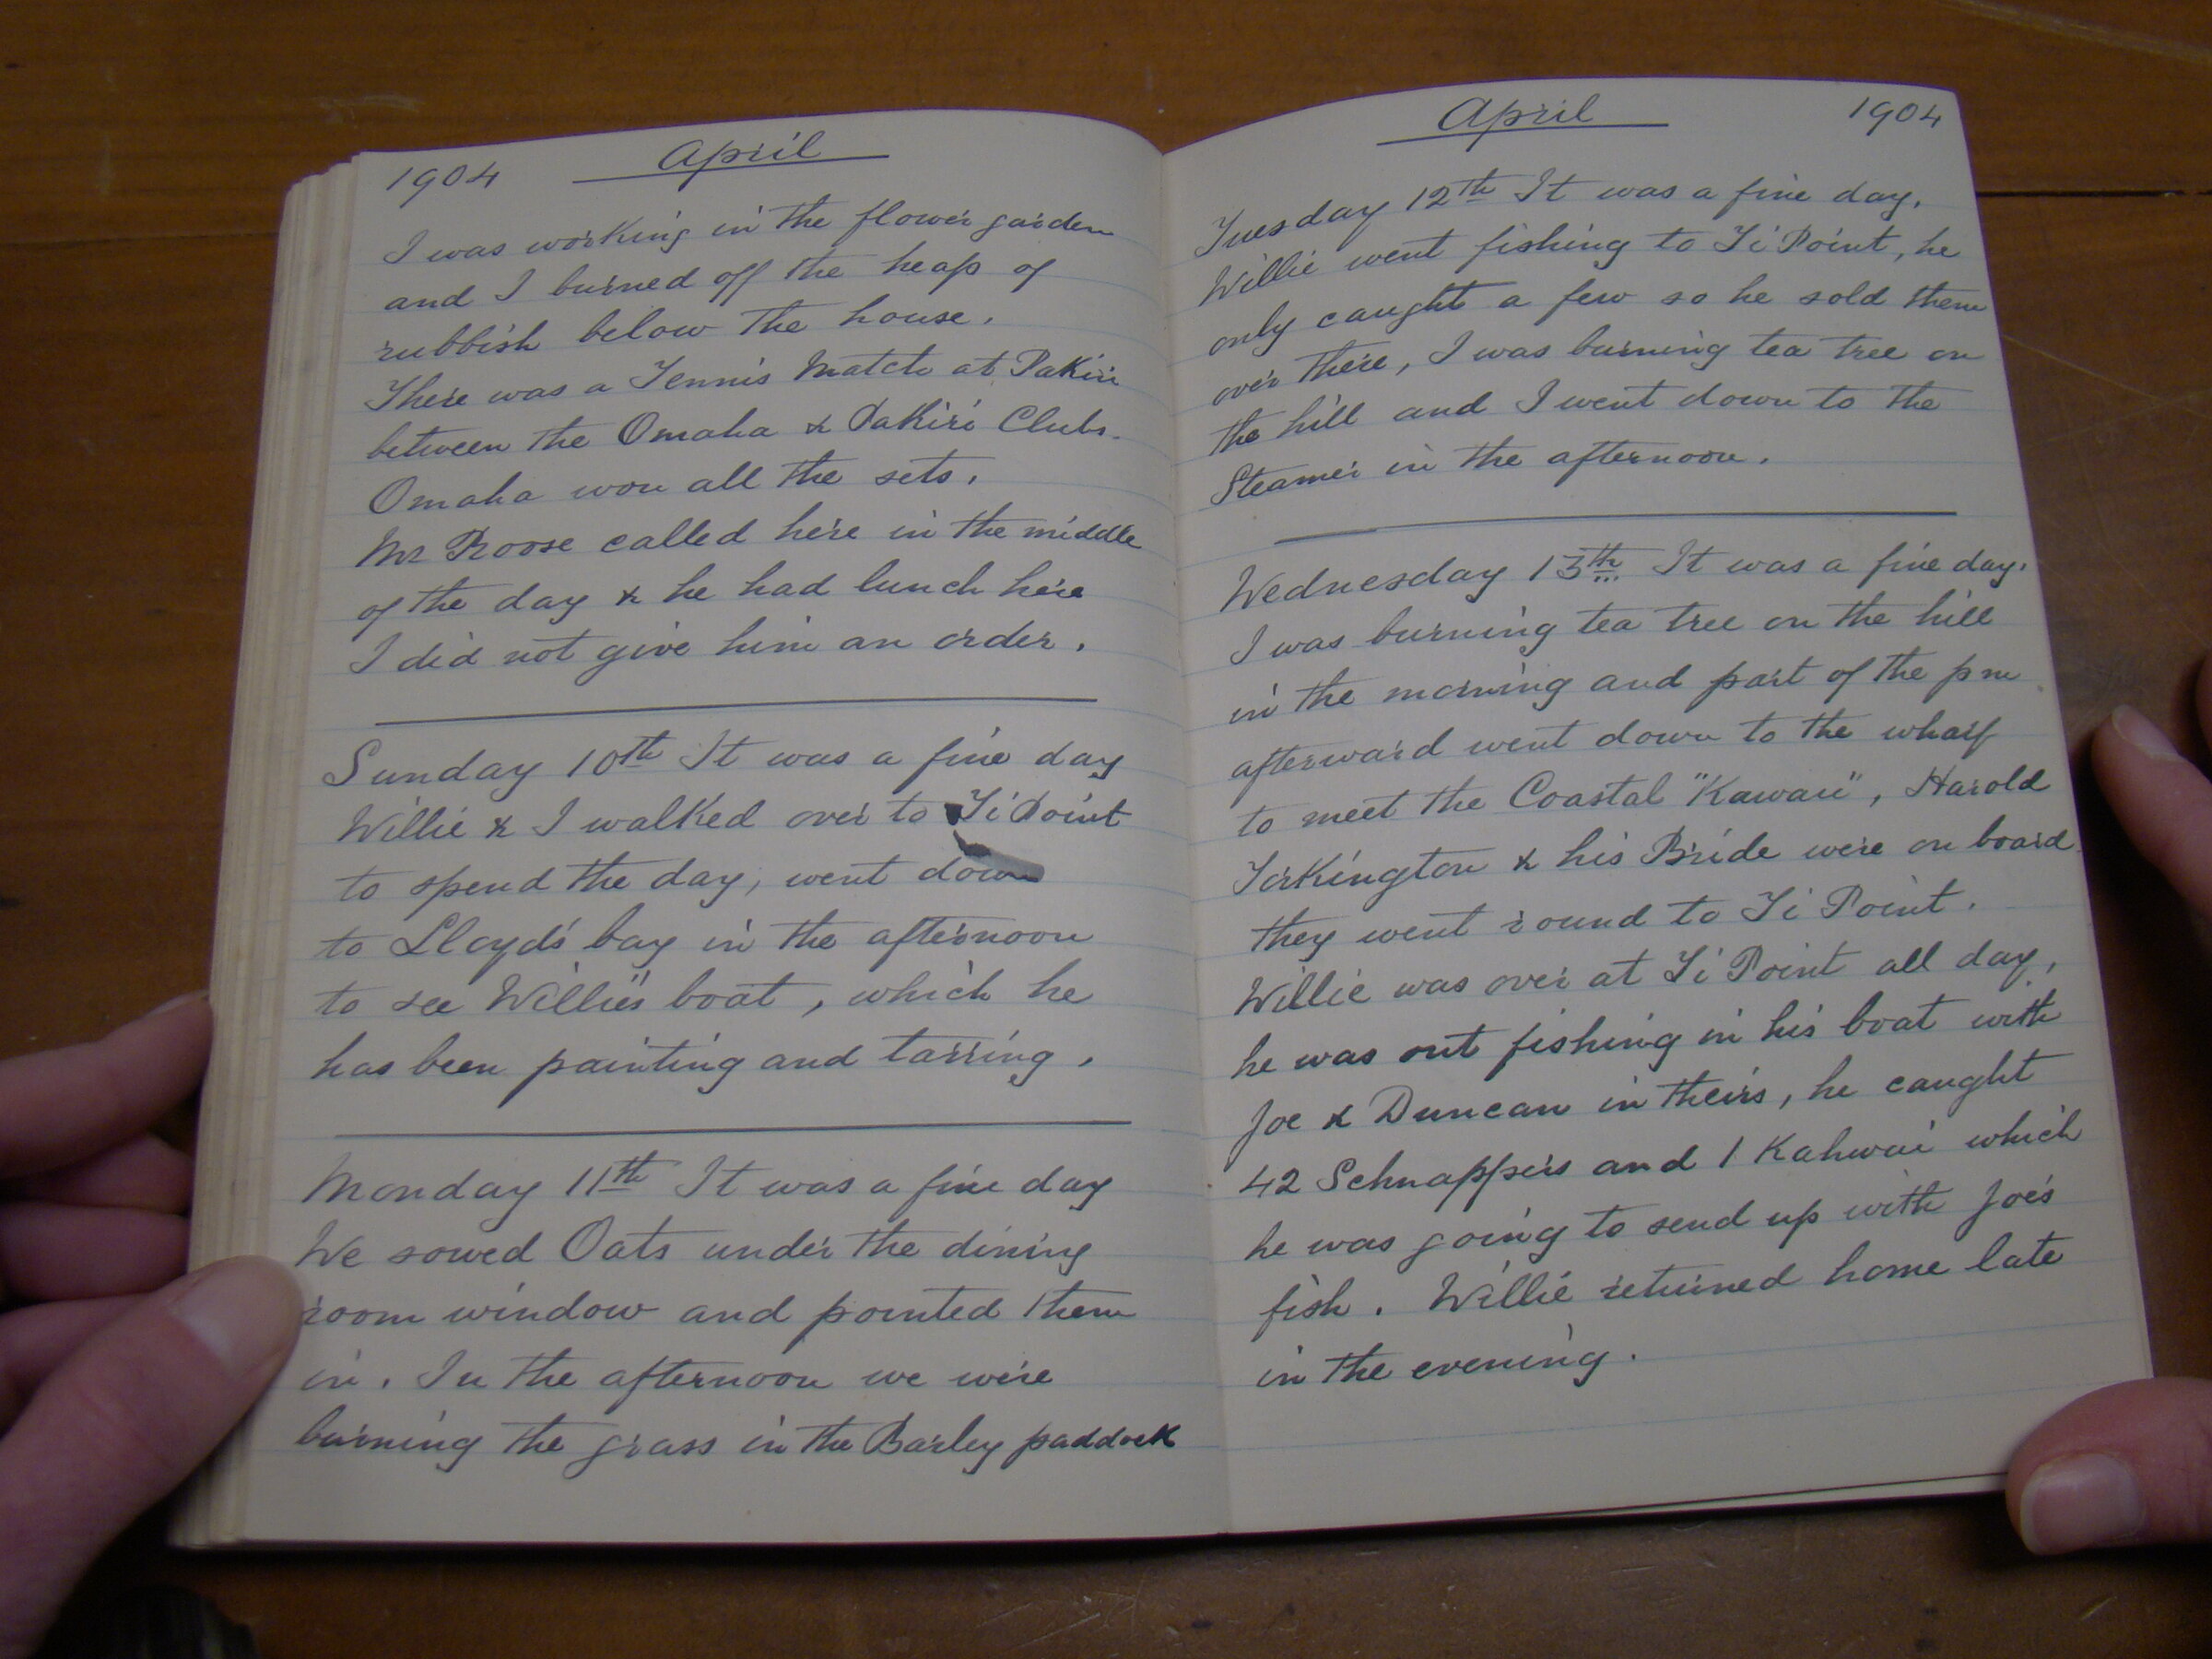 1904 April
I was working in the flower garden
and I burned off the heap of
rubbish below the house.
There was a Tennis Match at Pakiri
between the Omaha & Pakiri Clubs.
Omaha won all the sets.
Mr Roose called here in the middle
of the day & he had lunch here
I did not give him an order.
Sunday 10th It was a fine day
Willie & I walked over to Ti Point
to spend the day, went down
to Lloyd's bay in the afternoon
to see Willie's boat, which he
has been painting and tarring.
Monday 11th It was a fine day
We sowed Oats under the dining
room window and pointed them
in. In the afternoon we were
burning the grass in the Barley paddock
April 1904
Tuesday 12th It was a fine day.
Willie went fishing to Ti Point, he
only caught a few so he sold them
over there, I was burning tea tree on
the hill and I went down to the
Steamer in the afternoon.
Wednesday 13th It was a fine day.
I was burning tea tree on the hill
in the morning and part of the pm
afterward went down to the wharf
to meet the Coastal "Kawau", Harold
Torkington & his Bride were on board
they went round to Ti Point.
Willie was over at Ti Point all day,
he was out fishing in his boat with
Joe & Duncan in theirs, he caught
42 Schnappers and 1 Kahwai which
he was going to send up with Joe's
fish. Willie returned home late
in the evening.